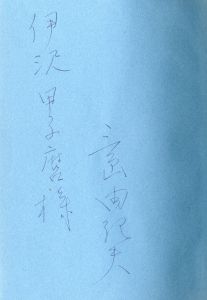 三島由紀夫
伊沢甲子麿様